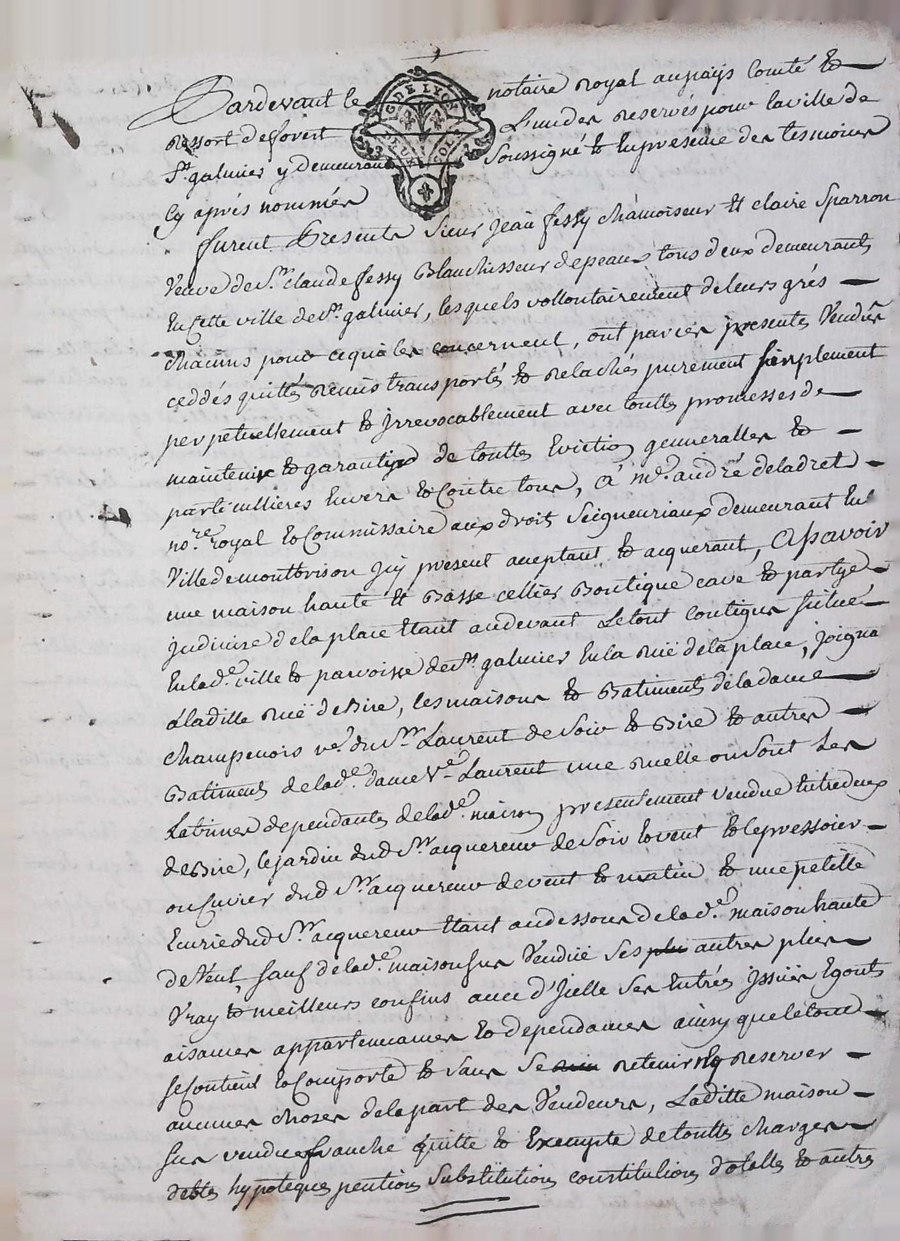 Pardevant le notaire royal au pays Comté &
ressort de forest L'un des reservés pour la ville de
St. galmier y demeurant soussigné & en presence des tesmoins
Cy aprés nommés
furent Presents Sieur Jean fessy chamoiseur & claire Sparron
G. DE LYON
DEUX SOLS
Veuve de Sr. claude fessy Blanchisseur de peaux tous deux demeurants
En Cette ville de St. galmier, lesquels vollontairement de leurs grés
chacuns pour ce qui les concernent, ont par ces presentes Vendus
ceddés quittés remis transportés & relachés purement simplement
perpetuellement & Irrevocablement avec touttes promesses de
maintenir & garantir de touttes Evictions generalles &
particullieres Envers & Contre tous, A Me. andré deladret
nore. royal & Commissaire aux droits Seigneuriaux demeurant En
Ville de montbrison Icy present aceptant & acquerant, Asçavoir
une maison haute & Basse cellier Boutique cave & partye
judivise de la place Etant au devant Le tout contigus situés
En lade. ville & parroisse de St. galmier En la ruë de la place, joignant
a laditte ruë de Bize, les maisons & Batiments de la dame
champenois ve. du Sr. Laurent de Soir & Bize & autres
Batiments de lade. dame Ve. Laurent une ruelle ou sont Les
Latrines dependantes de lade. maison presentement vendue Entredeux
de Bize, le jardin dud Sr. acquereur de Soir & vent & le pressoier
ou Cuvier dud Sr. acquereur de vent & matin & une petitte
Ecurie dud Sr. acquereur Etant au dessous de lade. maison haute
de Vent, sauf de lade. maison sus Venduë ses autres plus
Vray & meilleurs confins avec d'Icelle Ses Entrés Issuës Egouts
aisances appartenances & dependances ainsy que le tout
se Contient & Comporte & sans Se retenir ny reserver
aucunes choses de la part des Vendeurs, Laditte maison
sus vendue franche quitte & Exempte de touttes charges
debtes hypoteques pentions Substitutions constitutions dotalles & autres